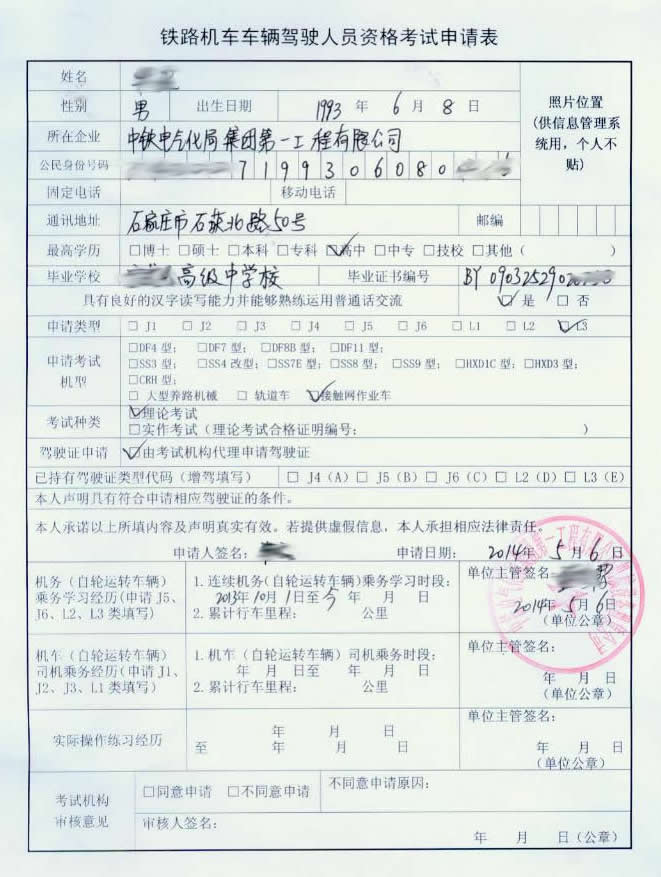 铁路机车车辆驾驶人员资格考试申请表
姓名
照片位置
(供信息管理系
统用,个人不
贴)
性别 男 出生日期 1993 年 6 月 8 日
所在企业 中铁电气化局集团第一工程有限公司
公民身份号码 7199306080
固定电话 移动电话
通讯地址 石家庄市石获北路50号 邮编
最高学历 □博士 □硕士 □本科 □专科 ☑高中 □中专 □技校 □其他( )
毕业学校 高级中学校 毕业证书编号 BY 0903252902
具有良好的汉字读写能力并能够熟练运用普通话交流 ☑ 是 □ 否
申请类型 □ J1 □ J2 □ J3 □ J4 □ J5 □ J6 □ L1 □ L2 ☑ L3
申请考试
机型
□DF4 型; □DF7 型; □DF8B 型; □DF11 型;
□SS3 型; □SS4 改型; □SS7E 型; □SS8 型; □SS9 型; □HXD1C 型; □HXD3 型;
□CRH 型;
□ 大型养路机械 □ 轨道车 ☑接触网作业车
考试种类 ☑理论考试
□实作考试(理论考试合格证明编号: )
驾驶证申请 ☑由考试机构代理申请驾驶证
已持有驾驶证类型代码(增驾填写) □ J4(A) □ J5(B) □ J6(C) □ L2(D) □ L3(E)
本人声明具有符合申请相应驾驶证的条件。
本人承诺以上所填内容及声明真实有效。若提供虚假信息,本人承担相应法律责任。
申请人签名: 申请日期: 2014 年 5 月 6 日
机务(自轮运转车辆)
乘务学习经历(申请 J5、
J6、L2、L3 类填写)
1.连续机务(自轮运转车辆)乘务学习时段:
2013年 10月 1日至 今 年 月 日
2.累计行车里程: 公里
单位主管签名:
2014年 5月 6日
(单位公章)
机车(自轮运转车辆)
司机乘务经历(申请 J1、
J2、J3、L1 类填写)
1.机车(自轮运转车辆)司机乘务时段:
年 月 日至 年 月 日
2.累计行车里程: 公里
单位主管签名:
年 月 日
(单位公章)
实际操作练习经历
年 月 日
至 年 月 日
单位主管签名:
年 月 日
(单位公章)
考试机构
审核意见
□同意申请 □不同意申请 不同意申请原因:
审核人签名:
年 月 日(公章)